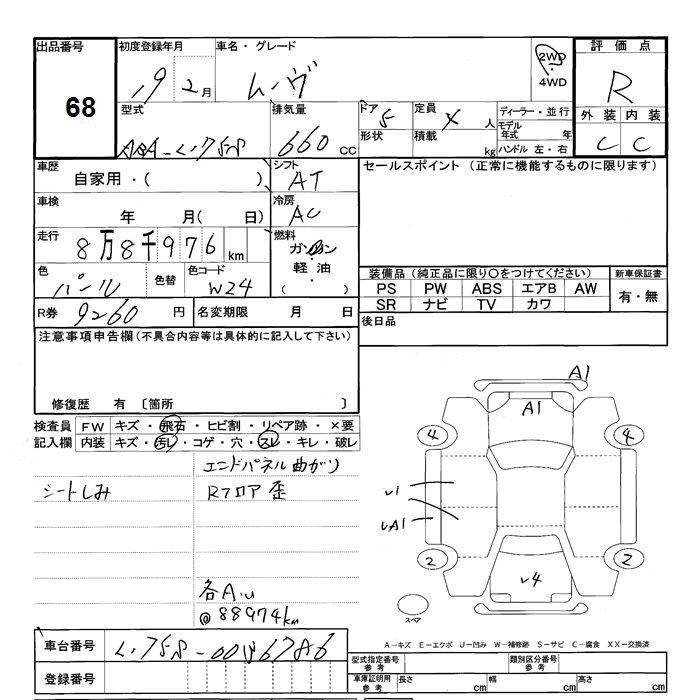 出品番号 68
初度登録年月 19 2月
車名・グレード ムーヴ
2WD
4WD
評価点 R
外装 内装
C C
型式 ABA-L175S
排気量 660 cc
ドア 5
形状
定員 4 人
積載 kg
ディーラー・並行
モデル年式 年
ハンドル 左・右
車歴 自家用・( )
シフト AT
セールスポイント (正常に機能するものに限ります)
車検 年 月( 日)
冷房 AC
走行 8万8千976km
燃料 ガソリン
軽油
( )
色 パール 色替
色コード W24
装備品(純正品に限り○をつけてください)
新車保証書
PS PW ABS エアB AW
SR ナビ TV カワ
有・無
R券 9260 円
名変期限 月 日
後日品
注意事項申告欄(不具合内容等は具体的に記入して下さい)
修復歴 有 〔箇所 〕
検査員記入欄
FW キズ・飛石・ヒビ割・リペア跡・×要
内装 キズ・汚レ・コゲ・穴・スレ・キレ・破レ
エンドパネル曲がり
シートしみ
Rフロア歪
各A.U
@88974km
A1
A1
4 4
U1
UA1
2 2
U4
スペア
A-キズ E-エクボ U-凹み W-補修跡 S-サビ C-腐食 XX-交換済
車台番号
登録番号
型式指定番号 参考
類別区分番号 参考
車庫証明用 参考
長さ cm 幅 cm 高さ cm